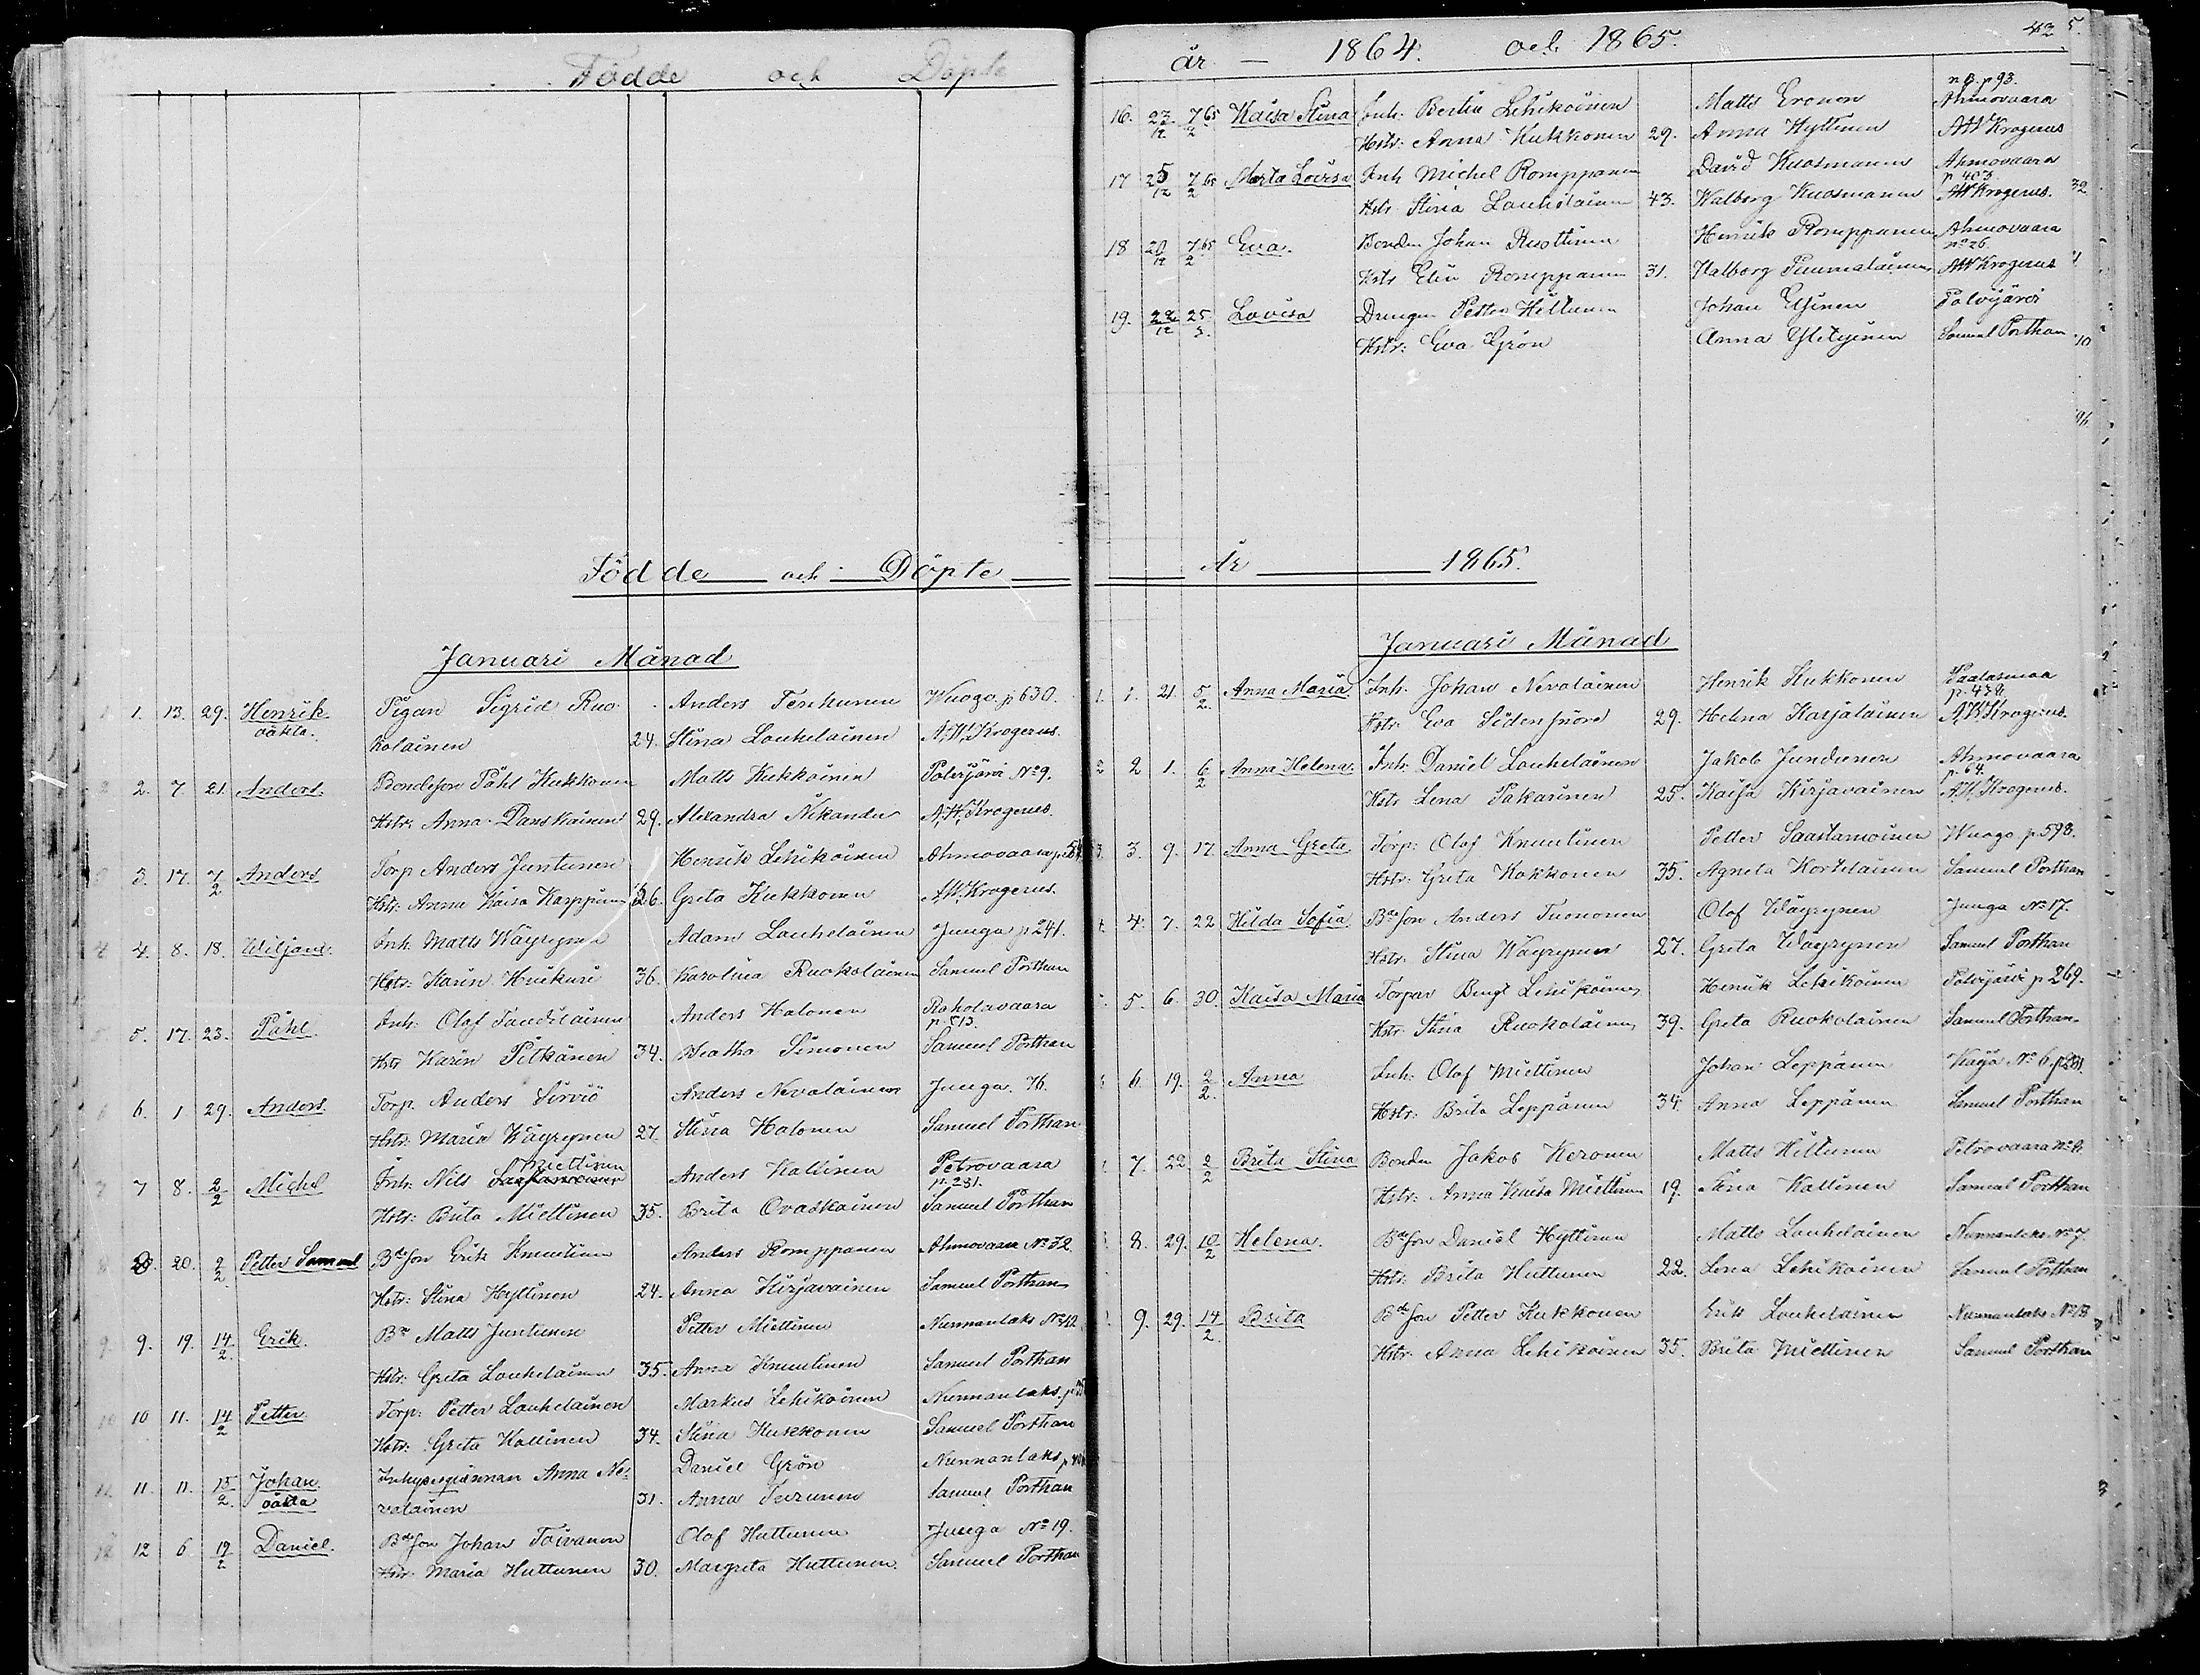 Födde och Döpte
1. 13. 29. Henrik Pigan Sigrid Ruo- Anders Tenhunen Wuogo p 630.
oäkta. kolainen 24. Stina Louhelainen A.W. Krogerus.
2. 7. 21. Anders. Bondeson Påhl Kukkonen Matts Kukkoinen Polvijärvi No 9.
Hstr: Anna Danskainen 29. Alexandra Nikander A.W. Krogerus.
3. 17. 7/2 Anders Torp Anders Juntunen Henrik Lehikoinen Ahmovaara
Hstr. Anna Kaisa Karppinen 26. Greta Kukkonen A.W. Krogerus.
4. 8. 18. Wiljam. Inh. Matts Wäyrynen Adam Louhelainen Junga p 241.
Hstr. Karin Hiukuri 36. Karolina Ruokolainen Samuel Porthan
5. 17. 23. Påhl. Inh. Olof Tandilainen Anders Halonen Roholavaara
p. 513.
Hstr Karin Pitkänen 34. Beatha Simonen Samuel Porthan
6. 1 29. Anders. Torp. Anders Sirviö Anders Nevalainen Junga. 76.
Hstr. Maria Wäyrynen 27 Stina Halonen Samuel Porthan
Miettinen
7 8. 2/2 Michel Inh. Nils Anders Kallinen Petrovaara
p. 231.
Hstr: Brita Miettinen 35. Brita Ovaskainen Samuel Porthan
8. 20. 2/2 Petter Samuel Bdeson Erik Knuutinen Anders Romppanen Ahmovaara No 32
Hstr: Stina Hyttinen 24. Anna Kirjavainen Samuel Porthan
9. 19. 14/2 Erik. Bn Matts Juntunen Petter Miettinen Nunnanlaks No 12
Hstr. Greta Louhelainen 35. Anna Knuutinen Samuel Porthan
10 11. 14/2 Petter Torp: Petter Louhelainen Markus Lehikoinen Nunnanlaks.
Hstr. Greta Kallinen 34. Stina Kukkonen Samuel Porthan
11. 11. 15/2. Johan Inhysesqvinnan Anna Ne- Daniel Grön Nunnanlaks
oäkta valainen 31. Anna Turunen Samuel Porthan
12 6. 19/2 Daniel. Bdeson Johan Toivanen Olof Huttunen Junga No 19.
Hstr. Maria Huttunen 30. Margreta Huttunen. Samuel Porthan
Födde och Döpte År 1865.
Januari Månad
år 1864. och 1865.
n 8. p 93.
16. 23/12 7/2 65 Kaisa Stina Inh. Bertil Lehikoinen Matts Eronen Ahmovaara
Hstr: Anna Kukkonen 29. Anna Hyttinen AW Krogerus
17 25/12 7/2 65 Marta Lovisa Inh Michel Romppanen David Kuosmanen Ahmovaara
p 403.
Hstr. Stina Louhelainen 43. Walborg Kuosmanen AW Krogerus.
18 20/12 7/2 65 Eva. Bonden Johan Ruottinen Henrik Romppanen Ahmovaara
no 26.
Hstr Elin Romppanen 31. Walborg Puumalainen AW Krogerus
19. 22/12 25/3. Lovisa Drängen Petter Hiltunen Johan Elsinen Polvijärvi
Hstr: Eva Grön Anna Samuel Porthan
Januari Månad
1. 21. 5/2. Anna Maria Inh. Johan Nevalainen Henrik Kukkonen Paalasmaa
p. 478
Hstr. Eva Sidensnöre 29. Helena Karjalainen A.W. Krogerus.
2 1. 6/2 Anna Helena. Inh. Daniel Louhelainen Jakob Juntunen Ahmovaara
p. 64.
Hstr Lena Pakarinen 25. Kaisa Kirjavainen A.W. Krogerus.
3. 9. 17. Anna Greta Torp: Olof Knuutinen Petter Saastamoinen Wuogo p 598.
Hstr: Greta Kokkonen 35. Agneta Kortelainen Samuel Porthan
4. 7. 22 Hilda Sofia Bdeson Anders Tuononen Olof Wäyrynen Junga No 17.
Hstr: Stina Wäyrynen 27. Greta Wäyrynen Samuel Porthan
5. 6. 30. Kaisa Maria Torpar Bengt Lehikoinen Henrik Lehikoinen Polvijärvi p 269.
Hstr: Stina Ruokolainen 39. Greta Ruokolainen Samuel Porthan
6. 19. 2/2. Anna Inh: Olof Miettinen Johan Leppänen No 6. p 231.
Hstr: Brita Leppänen 34. Anna Leppänen Samuel Porthan
7. 22 2/2 Brita Stina Bonden Jakob Keronen Matts Hiltunen Petrovaara
Hstr: Anna Kaisa Miettinen 19. Stina Kallinen Samuel Porthan
8. 29. 10/2 Helena. Bdeson Daniel Hyttinen Matts Louhelainen Nunnanlaks No 7.
Hstr: Brita Huttunen 22. Lena Lehikoinen Samuel Porthan
9. 29. 14/2. Brita Bdeson Petter Kukkonen Erik Louhelainen Nunnanlaks No 18
Hstr. Anna Lehikoinen 35. Brita Miettinen Samuel Porthan